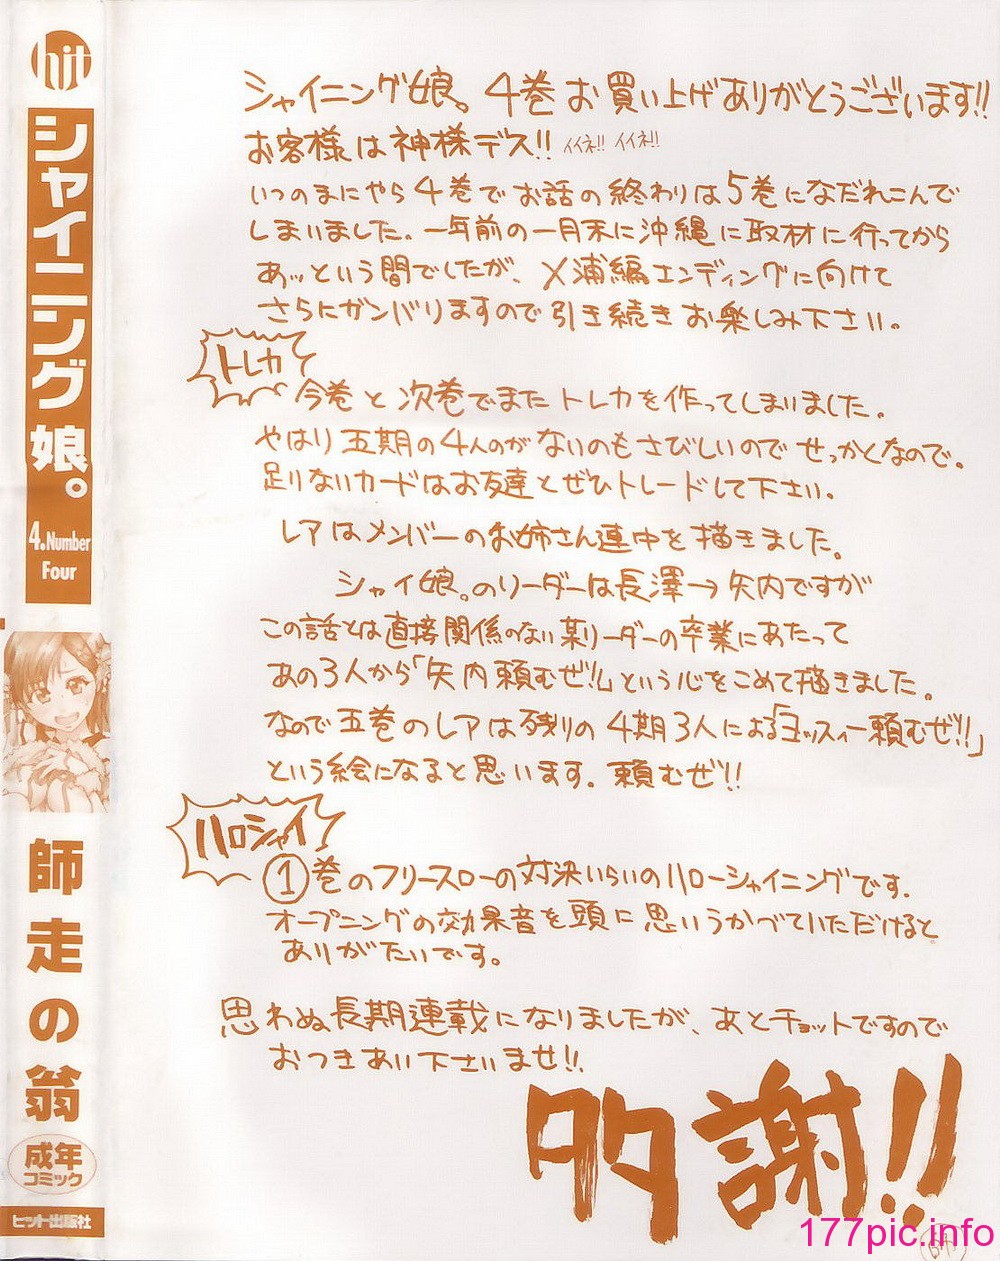 hit
シャイニング娘。
4.Number
Four
師走の翁
成年
コミック
ヒット出版社
シャイニング娘。4巻お買い上げありがとうございます!!
お客様は神様デス!! イイネ!! イイネ!!
いつのまにやら4巻でお話の終わりは5巻になだれこんで
しまいました。一年前の一月末に沖縄に取材に行ってから
あッという間でしたが、メ浦編エンディングに向けて
さらにガンバりますので引き続きお楽しみ下さい。
トレカ
今巻と次巻でまたトレカを作ってしまいました。
やはり五期の4人のがないのもさびしいのでせっかくなので。
足りないカードはお友達とぜひトレードして下さい。
レアはメンバーのお姉さん連中を描きました。
シャイ娘。のリーダーは長澤→矢内ですが
この話とは直接関係のない某リーダーの卒業にあたって
あの3人から「矢内頼むぜ!!」という心をこめて描きました。
なので五巻のレアは残りの4期3人による「ヨッスィー頼むぜ!!」
という絵になると思います。頼むぜ!!
ハロシャイ
①巻のフリースローの対決いらいのハローシャイニングです。
オープニングの効果音を頭に思いうかべていただけると
ありがたいです。
思わぬ長期連載になりましたが、あとチョットですので
おつきあい下さいませ!!
多謝!!
177pic.info